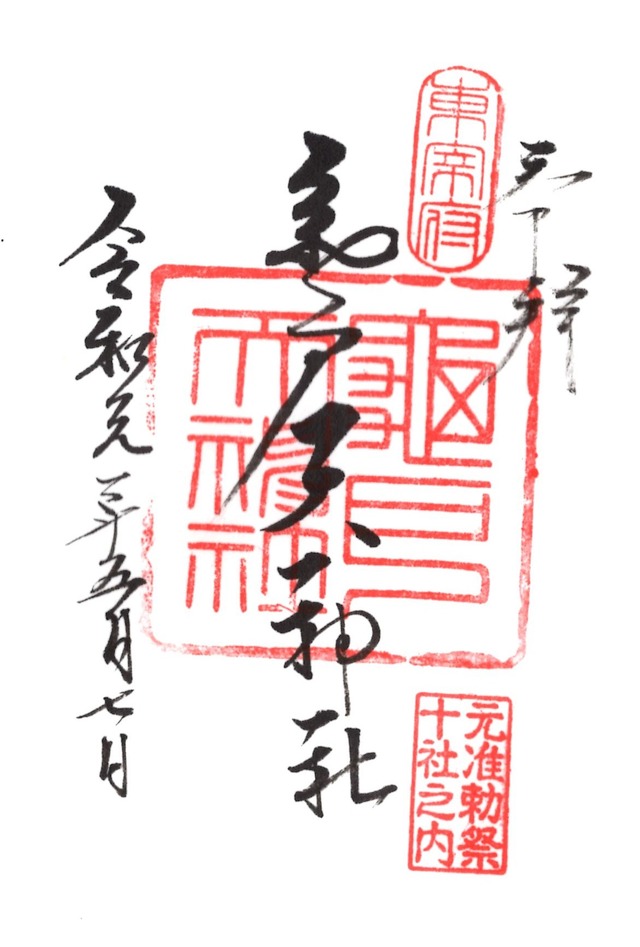 奉拝
東宰府
亀戸天神社
龜戸
天神社
元准勅祭
十社之内
令和元年五月七日